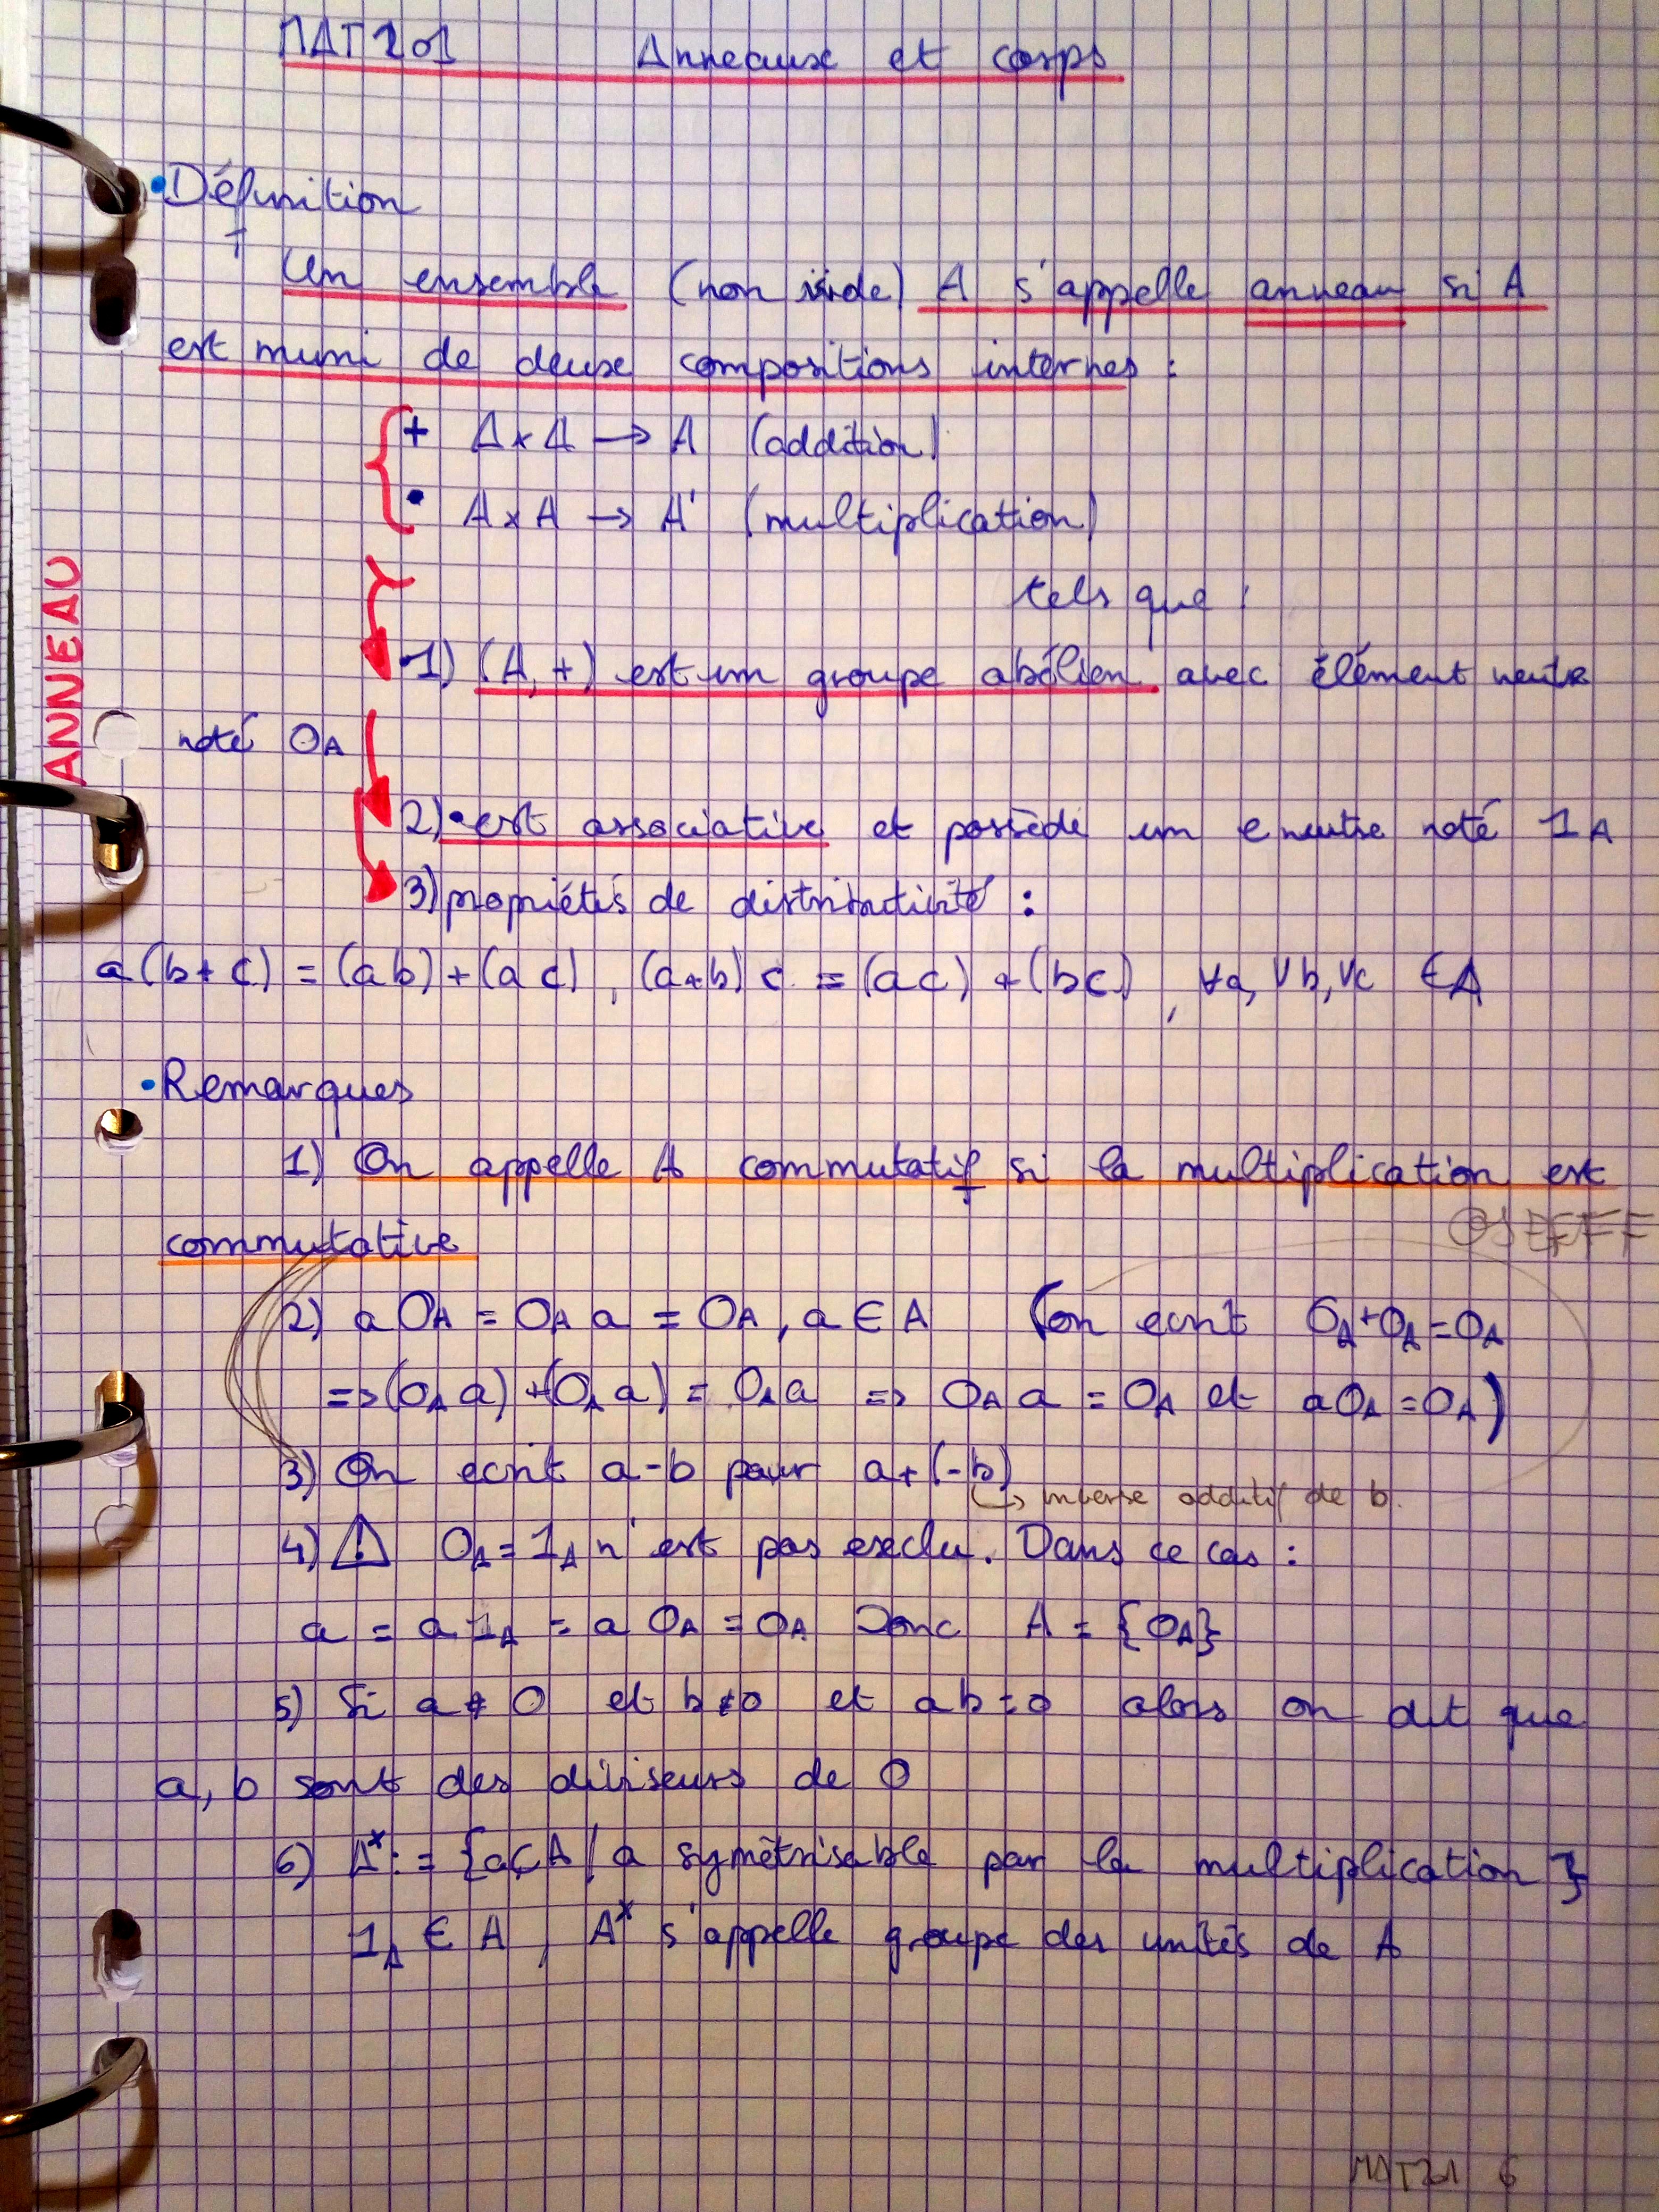 MAT201 Anneaux et corps
• Définition
Un ensemble (non vide) A s'appelle anneau si A
est muni de deux compositions internes :
+ A × A → A (addition)
• A × A → A (multiplication)
tels que :
ANNEAU
1) (A, +) est un groupe abélien avec élément neutre
noté 0A
2) • est associative et possède un e neutre noté 1A
3) propriétés de distributivité :
a(b+c) = (ab)+(ac), (a+b)c = (ac)+(bc), ∀a, ∀b, ∀c ∈ A
• Remarques
1) On appelle A commutatif si la multiplication est
commutative
OSEFFF
2) a 0A = 0A a = 0A, a ∈ A (on ecrit 0A+0A=0A
=> (0A a)+(0A a) = 0A a => 0A a = 0A et a 0A = 0A)
3) On ecrit a-b pour a+(-b)
↳ inverse additif de b.
4) ⚠ 0A = 1A n'est pas exclu. Dans ce cas :
a = a 1A = a 0A = 0A Donc A = {0A}
5) Si a ≠ 0 et b ≠ 0 et ab = 0 alors on dit que
a, b sont des diviseurs de 0
6) A* := {a ∈ A / a symétrisable par la multiplication}
1A ∈ A, A* s'appelle groupe des unités de A
MAT201 6